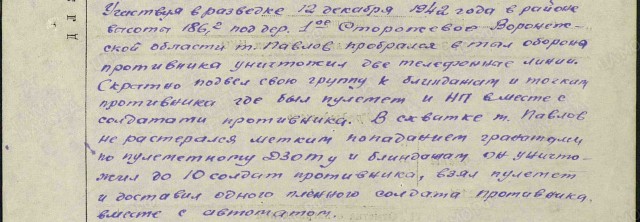 Участвуя в разведке 12 декабря 1942 года в районе
высота 186,2 под дер. 1ое Сторожевое Воронеж-
ской области т. Павлов пробрался в тыл обороны
противника уничтожил две телефонные линии.
Скрытно подвел свою группу к блиндажам и точкам
противника где был пулемет и НП вместе с
солдатами противника. В схватке т. Павлов
не растерялся метким попаданием гранатами
по пулеметному ДЗОТу и блиндажам он уничто-
жил до 10 солдат противника, взял пулемет
и доставил одного пленного солдата противника
вместе с автоматом.